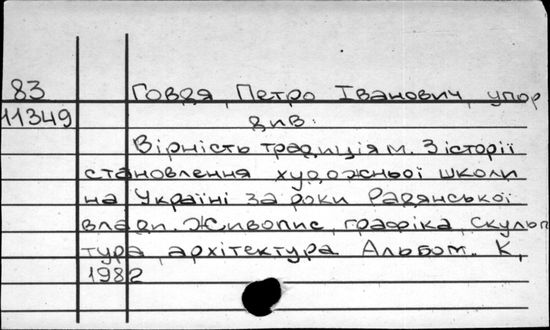 83 Говдя, Петро Іванович, упор
11349 див:
Вірність традиціям. З історії
становлення художньої школи
на Україні за роки Радянської
влади. Живопис, графіка, скульп
тура, архітектура. Альбом. К,
1982